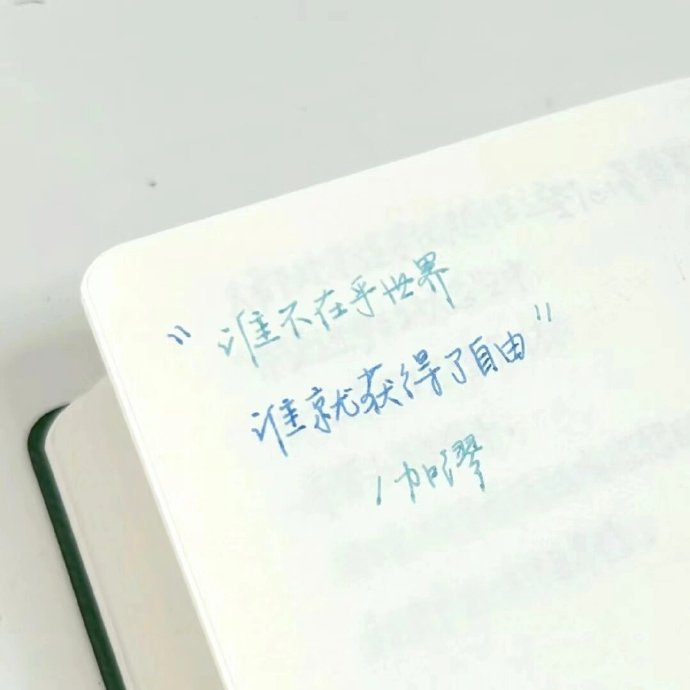 "谁不在乎世界
谁就获得了自由"
/加谬